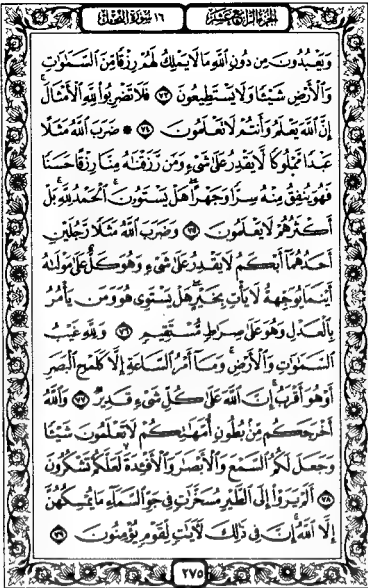 الجزء الرابع عشر
١٦ سورة النحل
وَيَعْبُدُونَ مِن دُونِ ٱللَّهِ مَا لَا يَمْلِكُ لَهُمْ رِزْقًا مِّنَ ٱلسَّمَٰوَٰتِ
وَٱلْأَرْضِ شَيْـًٔا وَلَا يَسْتَطِيعُونَ ٧٣ فَلَا تَضْرِبُوا۟ لِلَّهِ ٱلْأَمْثَالَ
إِنَّ ٱللَّهَ يَعْلَمُ وَأَنتُمْ لَا تَعْلَمُونَ ٧٤ * ضَرَبَ ٱللَّهُ مَثَلًا
عَبْدًا مَّمْلُوكًا لَّا يَقْدِرُ عَلَىٰ شَىْءٍ وَمَن رَّزَقْنَٰهُ مِنَّا رِزْقًا حَسَنًا
فَهُوَ يُنفِقُ مِنْهُ سِرًّا وَجَهْرًا هَلْ يَسْتَوُۥنَ ٱلْحَمْدُ لِلَّهِ بَلْ
أَكْثَرُهُمْ لَا يَعْلَمُونَ ٧٥ وَضَرَبَ ٱللَّهُ مَثَلًا رَّجُلَيْنِ
أَحَدُهُمَآ أَبْكَمُ لَا يَقْدِرُ عَلَىٰ شَىْءٍ وَهُوَ كَلٌّ عَلَىٰ مَوْلَىٰهُ
أَيْنَمَا يُوَجِّههُّ لَا يَأْتِ بِخَيْرٍ هَلْ يَسْتَوِى هُوَ وَمَن يَأْمُرُ
بِٱلْعَدْلِ وَهُوَ عَلَىٰ صِرَٰطٍ مُّسْتَقِيمٍ ٧٦ وَلِلَّهِ غَيْبُ
ٱلسَّمَٰوَٰتِ وَٱلْأَرْضِ وَمَآ أَمْرُ ٱلسَّاعَةِ إِلَّا كَلَمْحِ ٱلْبَصَرِ
أَوْ هُوَ أَقْرَبُ إِنَّ ٱللَّهَ عَلَىٰ كُلِّ شَىْءٍ قَدِيرٌ ٧٧ وَٱللَّهُ
أَخْرَجَكُم مِّنۢ بُطُونِ أُمَّهَٰتِكُمْ لَا تَعْلَمُونَ شَيْـًٔا
وَجَعَلَ لَكُمُ ٱلسَّمْعَ وَٱلْأَبْصَٰرَ وَٱلْأَفْـِٔدَةَ لَعَلَّكُمْ تَشْكُرُونَ
٧٨ أَلَمْ يَرَوْا۟ إِلَى ٱلطَّيْرِ مُسَخَّرَٰتٍ فِى جَوِّ ٱلسَّمَآءِ مَا يُمْسِكُهُنَّ
إِلَّا ٱللَّهُ إِنَّ فِى ذَٰلِكَ لَـَٔايَٰتٍ لِّقَوْمٍ يُؤْمِنُونَ ٧٩
٢٧٥